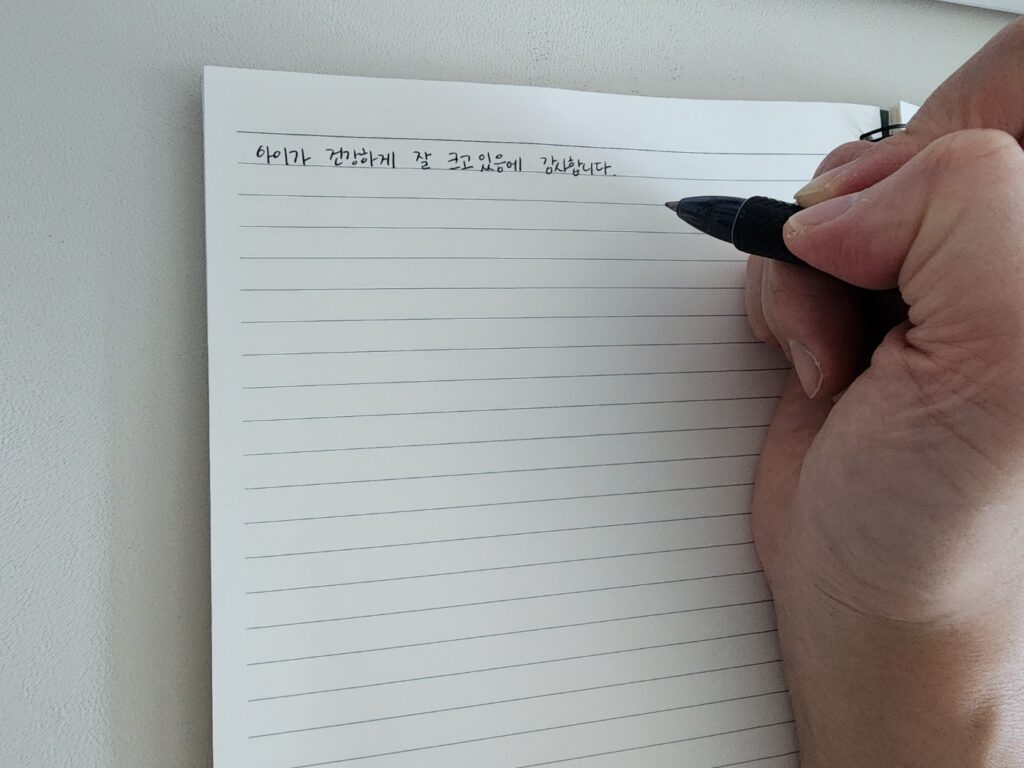 아이가 건강하게 잘 크고 있음에 감사합니다.